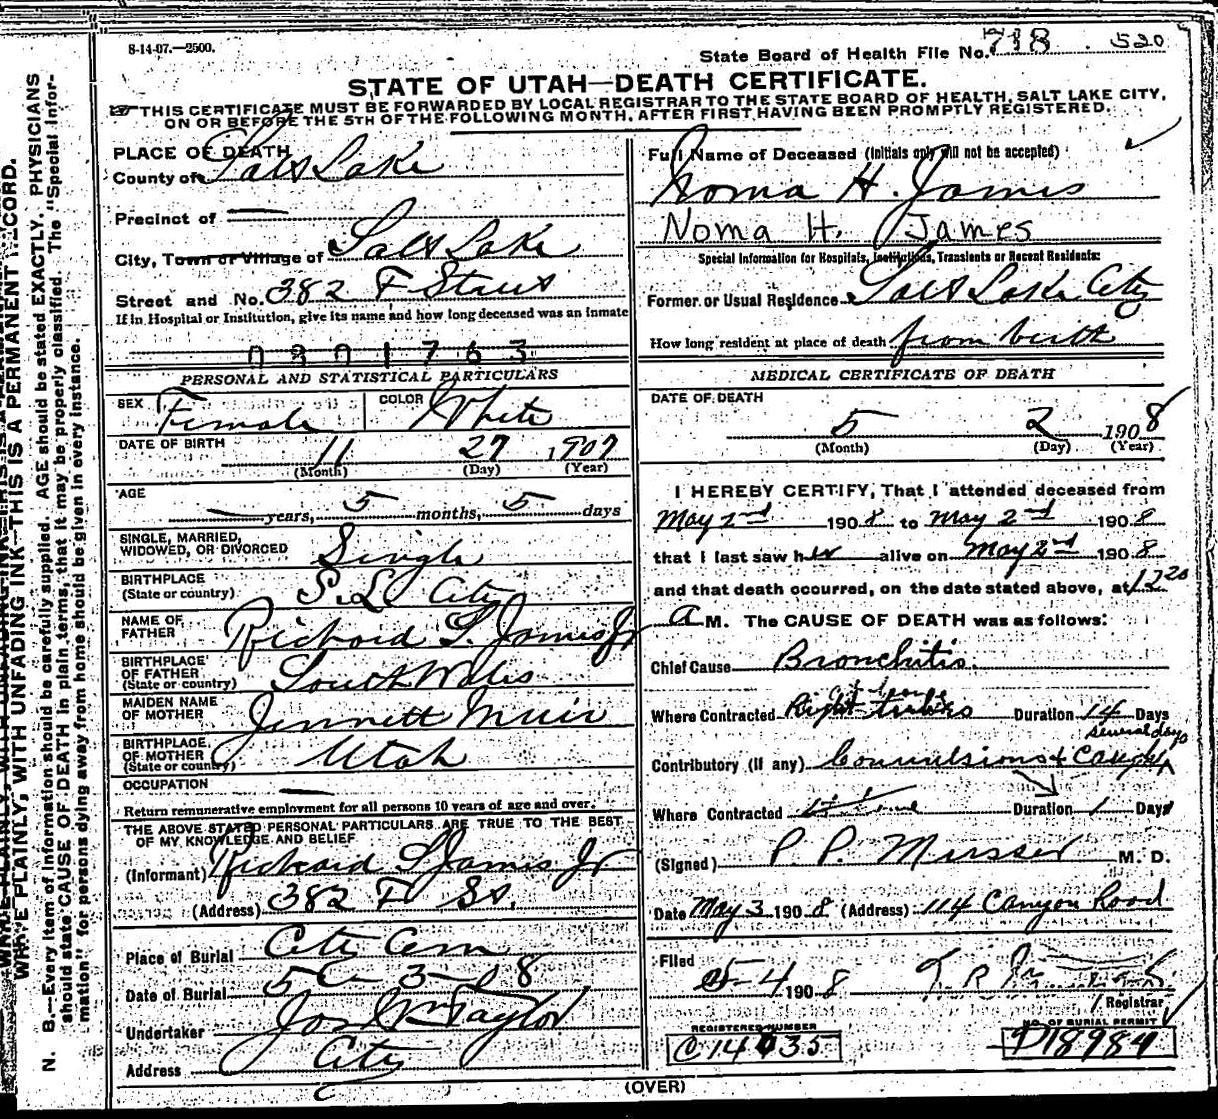 8-14-07.—2500.
State Board of Health File No. 738 . 520
STATE OF UTAH—DEATH CERTIFICATE.
THIS CERTIFICATE MUST BE FORWARDED BY LOCAL REGISTRAR TO THE STATE BOARD OF HEALTH, SALT LAKE CITY,
ON OR BEFORE THE 5TH OF THE FOLLOWING MONTH, AFTER FIRST HAVING BEEN PROMPTLY REGISTERED.
PLACE OF DEATH
County of Salt Lake
Precinct of —
City, Town or Village of Salt Lake
Street and No. 382 F Street
If in Hospital or Institution, give its name and how long deceased was an inmate
PERSONAL AND STATISTICAL PARTICULARS
SEX Female COLOR White
DATE OF BIRTH 11 27 1907
(Month) (Day) (Year)
AGE — years, 5 months, 5 days
SINGLE, MARRIED,
WIDOWED, OR DIVORCED Single
BIRTHPLACE
(State or country) S. L. City
NAME OF
FATHER Richard L. James Jr
BIRTHPLACE
OF FATHER
(State or country) South Wales
MAIDEN NAME
OF MOTHER Jennett Muir
BIRTHPLACE
OF MOTHER
(State or country) Utah
OCCUPATION —
Return remunerative employment for all persons 10 years of age and over.
THE ABOVE STATED PERSONAL PARTICULARS ARE TRUE TO THE BEST
OF MY KNOWLEDGE AND BELIEF
(Informant) Richard L James Jr
(Address) 382 F St.
Place of Burial City Cem
Date of Burial 5 - 3 - 08
Undertaker Jos Wm Taylor
Address City
Full Name of Deceased (Initials only will not be accepted)
Noma H. James
Noma H. James
Special Information for Hospitals, Institutions, Transients or Recent Residents:
Former or Usual Residence Salt Lake City
How long resident at place of death from birth
MEDICAL CERTIFICATE OF DEATH
DATE OF DEATH
5 2 1908
(Month) (Day) (Year)
I HEREBY CERTIFY, That I attended deceased from
May 2nd 1908 to May 2nd 1908
that I last saw her alive on May 2nd 1908
and that death occurred, on the date stated above, at 12 20
A M. The CAUSE OF DEATH was as follows:
Chief Cause Bronchitis.
Where Contracted Duration 14 Days
several days
Contributory (if any) Convulsions & Cough
Where Contracted At home Duration 1 Days
(Signed) P. P. Musser M. D.
Date May 3 1908 (Address) 114 Canyon Road
Filed 5-4 1908
Registrar
REGISTERED NUMBER
C14035
NO. OF BURIAL PERMIT
(OVER)
WRITE PLAINLY, WITH UNFADING INK—THIS IS A PERMANENT RECORD.
N. B.—Every item of information should be carefully supplied. AGE should be stated EXACTLY. PHYSICIANS
should state CAUSE OF DEATH in plain terms, that it may be properly classified. The "Special Infor-
mation" for persons dying away from home should be given in every instance.